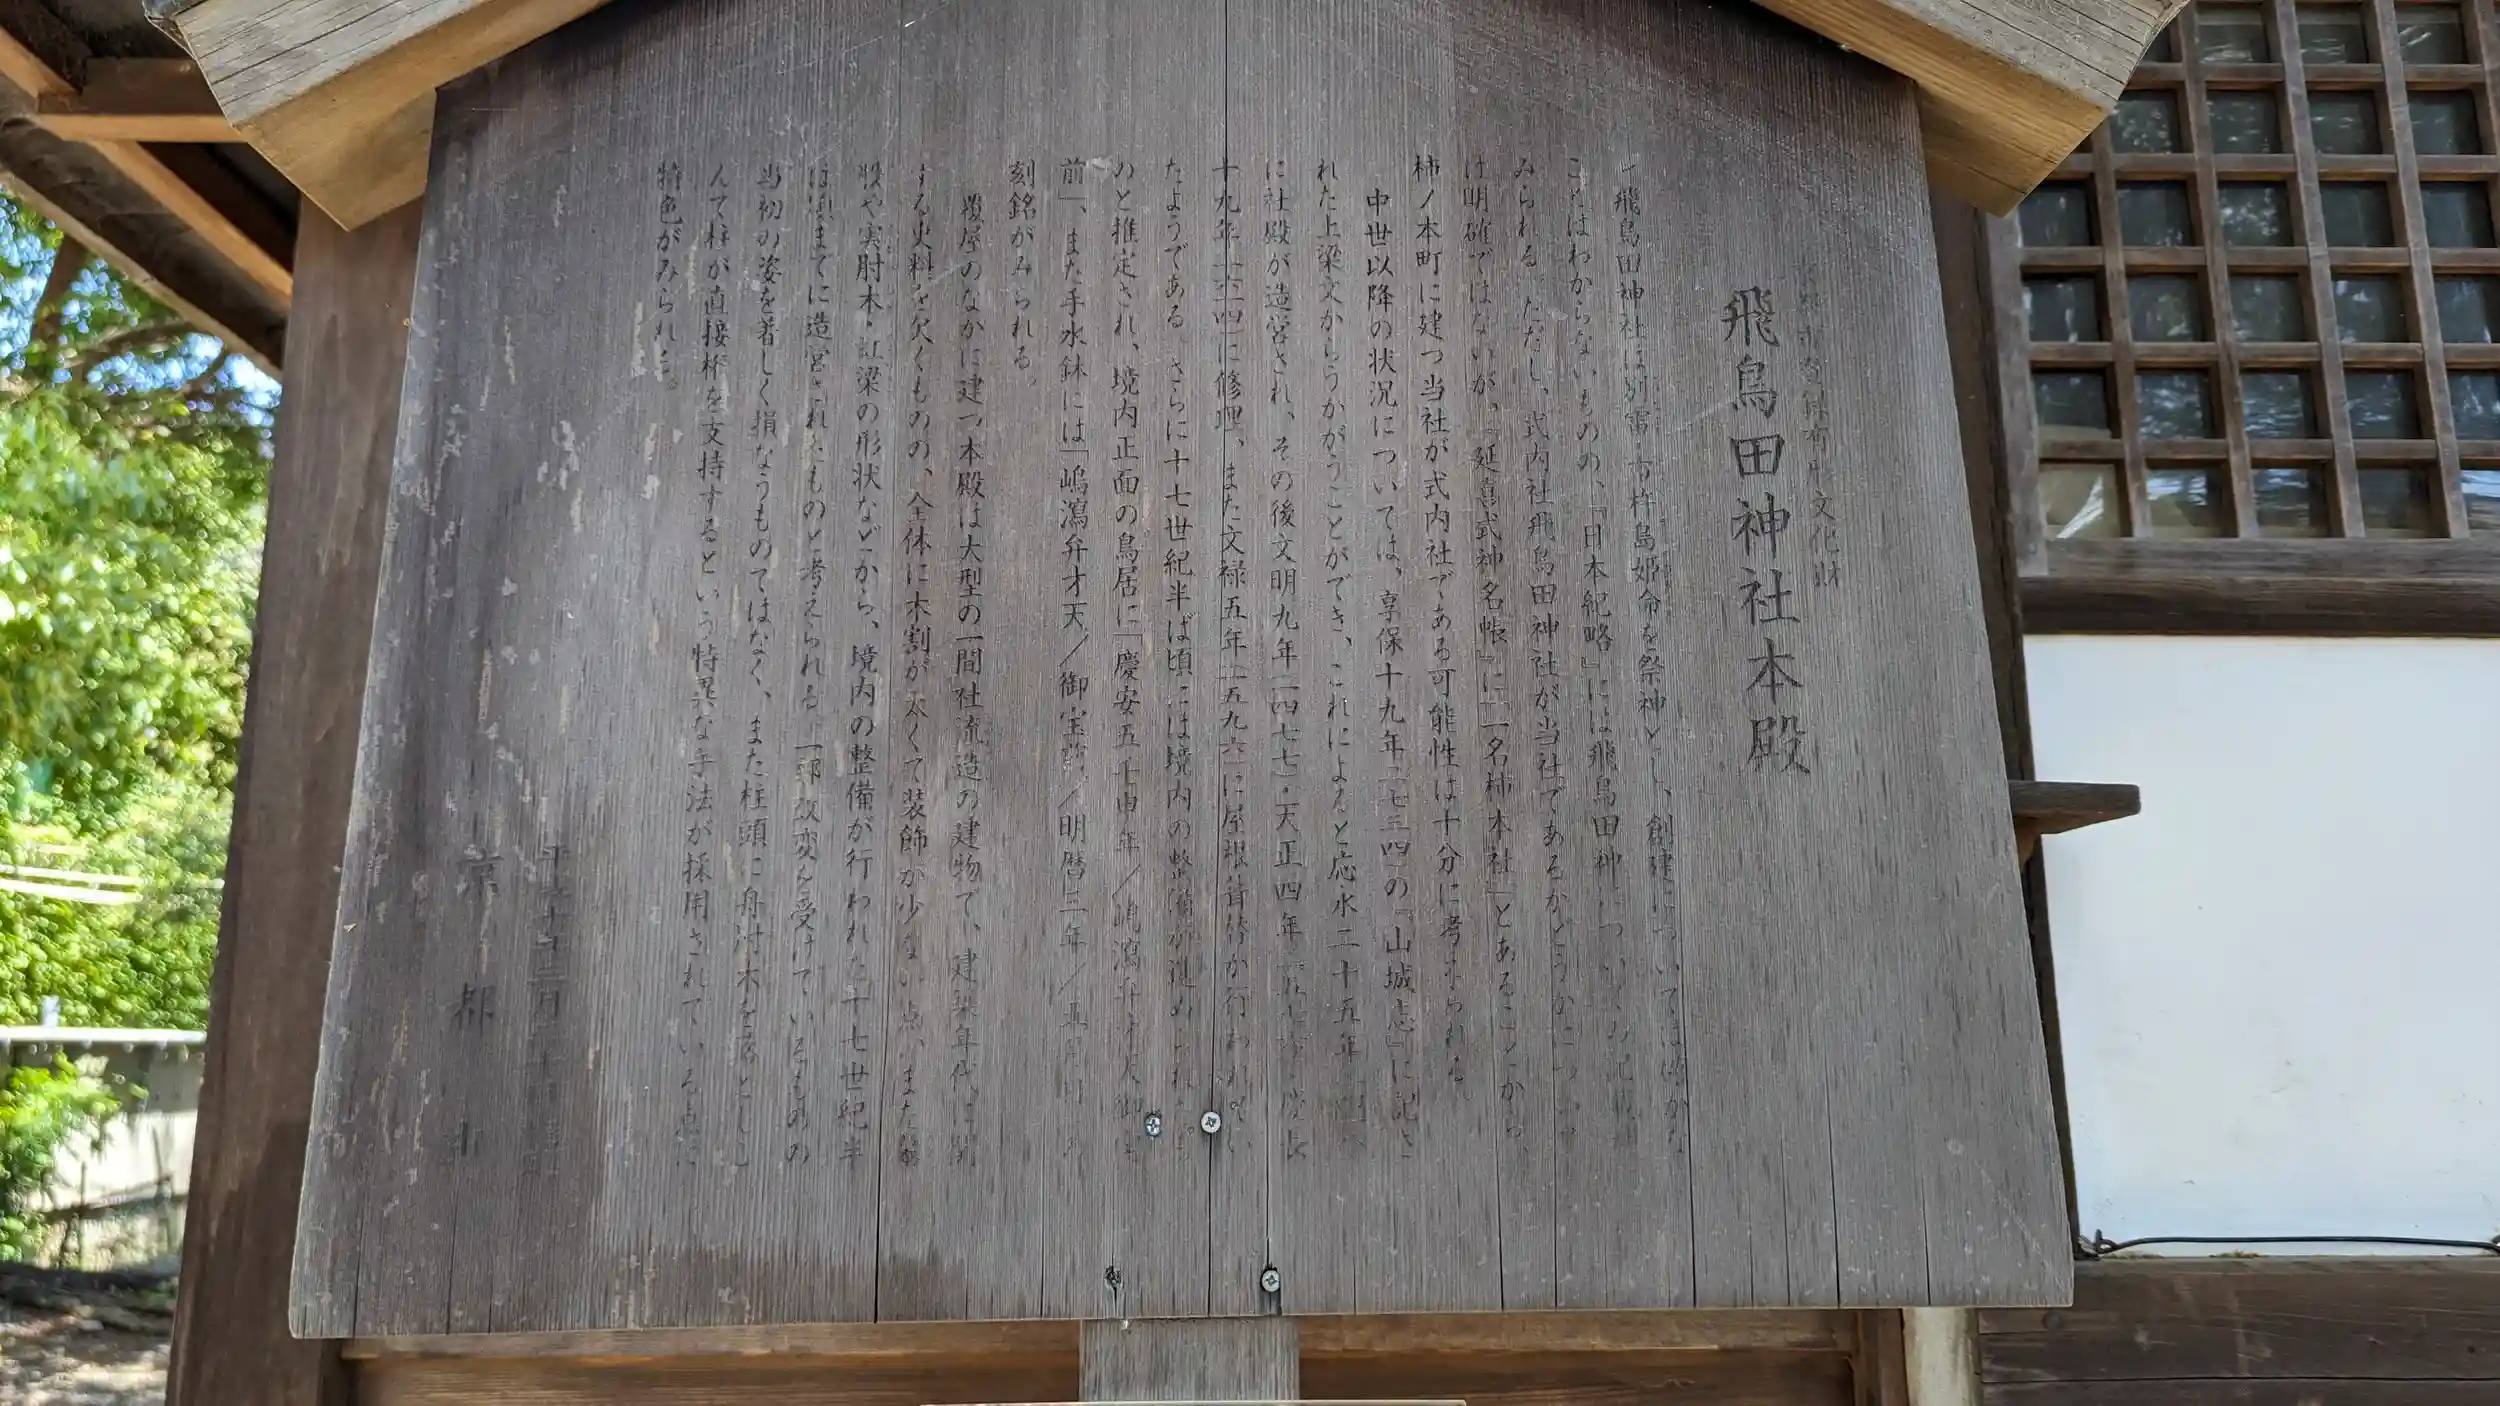 市登録有形文化財
飛鳥田神社本殿
飛鳥田神社は別雷・市杵島姫命を祭神とし、創建については明かな
ことはわからないものの、『日本紀略』には飛鳥田神についての記
みられる。ただし、式内社飛鳥田神社が当社であるかどうかについて
は明確ではないが、『延喜式神名帳』に「一名柿本社」とあることから、
柿ノ本町に建つ当社が式内社である可能性は十分に考えられる。
中世以降の状況については、享保十九年(一七三四)の『山城志』に記さ
れた上梁文からうかがうことができ、これによると応永二十五年
に社殿が造営され、その後文明九年(一四七七)・天正四年(一五七六)・慶長
十九年(一六一四)に修理、また文禄五年(一五九六)に屋根葺替が行われてい
たようである。さらに十七世紀半ば頃には境内の整備が進められたも
のと推定され、境内正面の鳥居に「慶安五壬申年/嶋瀉弁才天御
前」、また手水鉢には「嶋瀉弁才天/御宝前/明暦三年/五月日」の
刻銘がみられる。
覆屋のなかに建つ本殿は大型の一間社流造の建物で、建築年代に関
する史料を欠くものの、全体に木割が太くて装飾が少ない点、また蟇
股や実肘木・虹梁の形状などから、境内の整備が行われた十七世紀半
ば頃までに造営されたものと考えられる。一部改変を受けているものの
当初の姿を著しく損なうものではなく、また柱頭に舟肘木を
んで柱が直接桁を支持するという特異な手法が採用されている点に
特色がみられる。
京都市